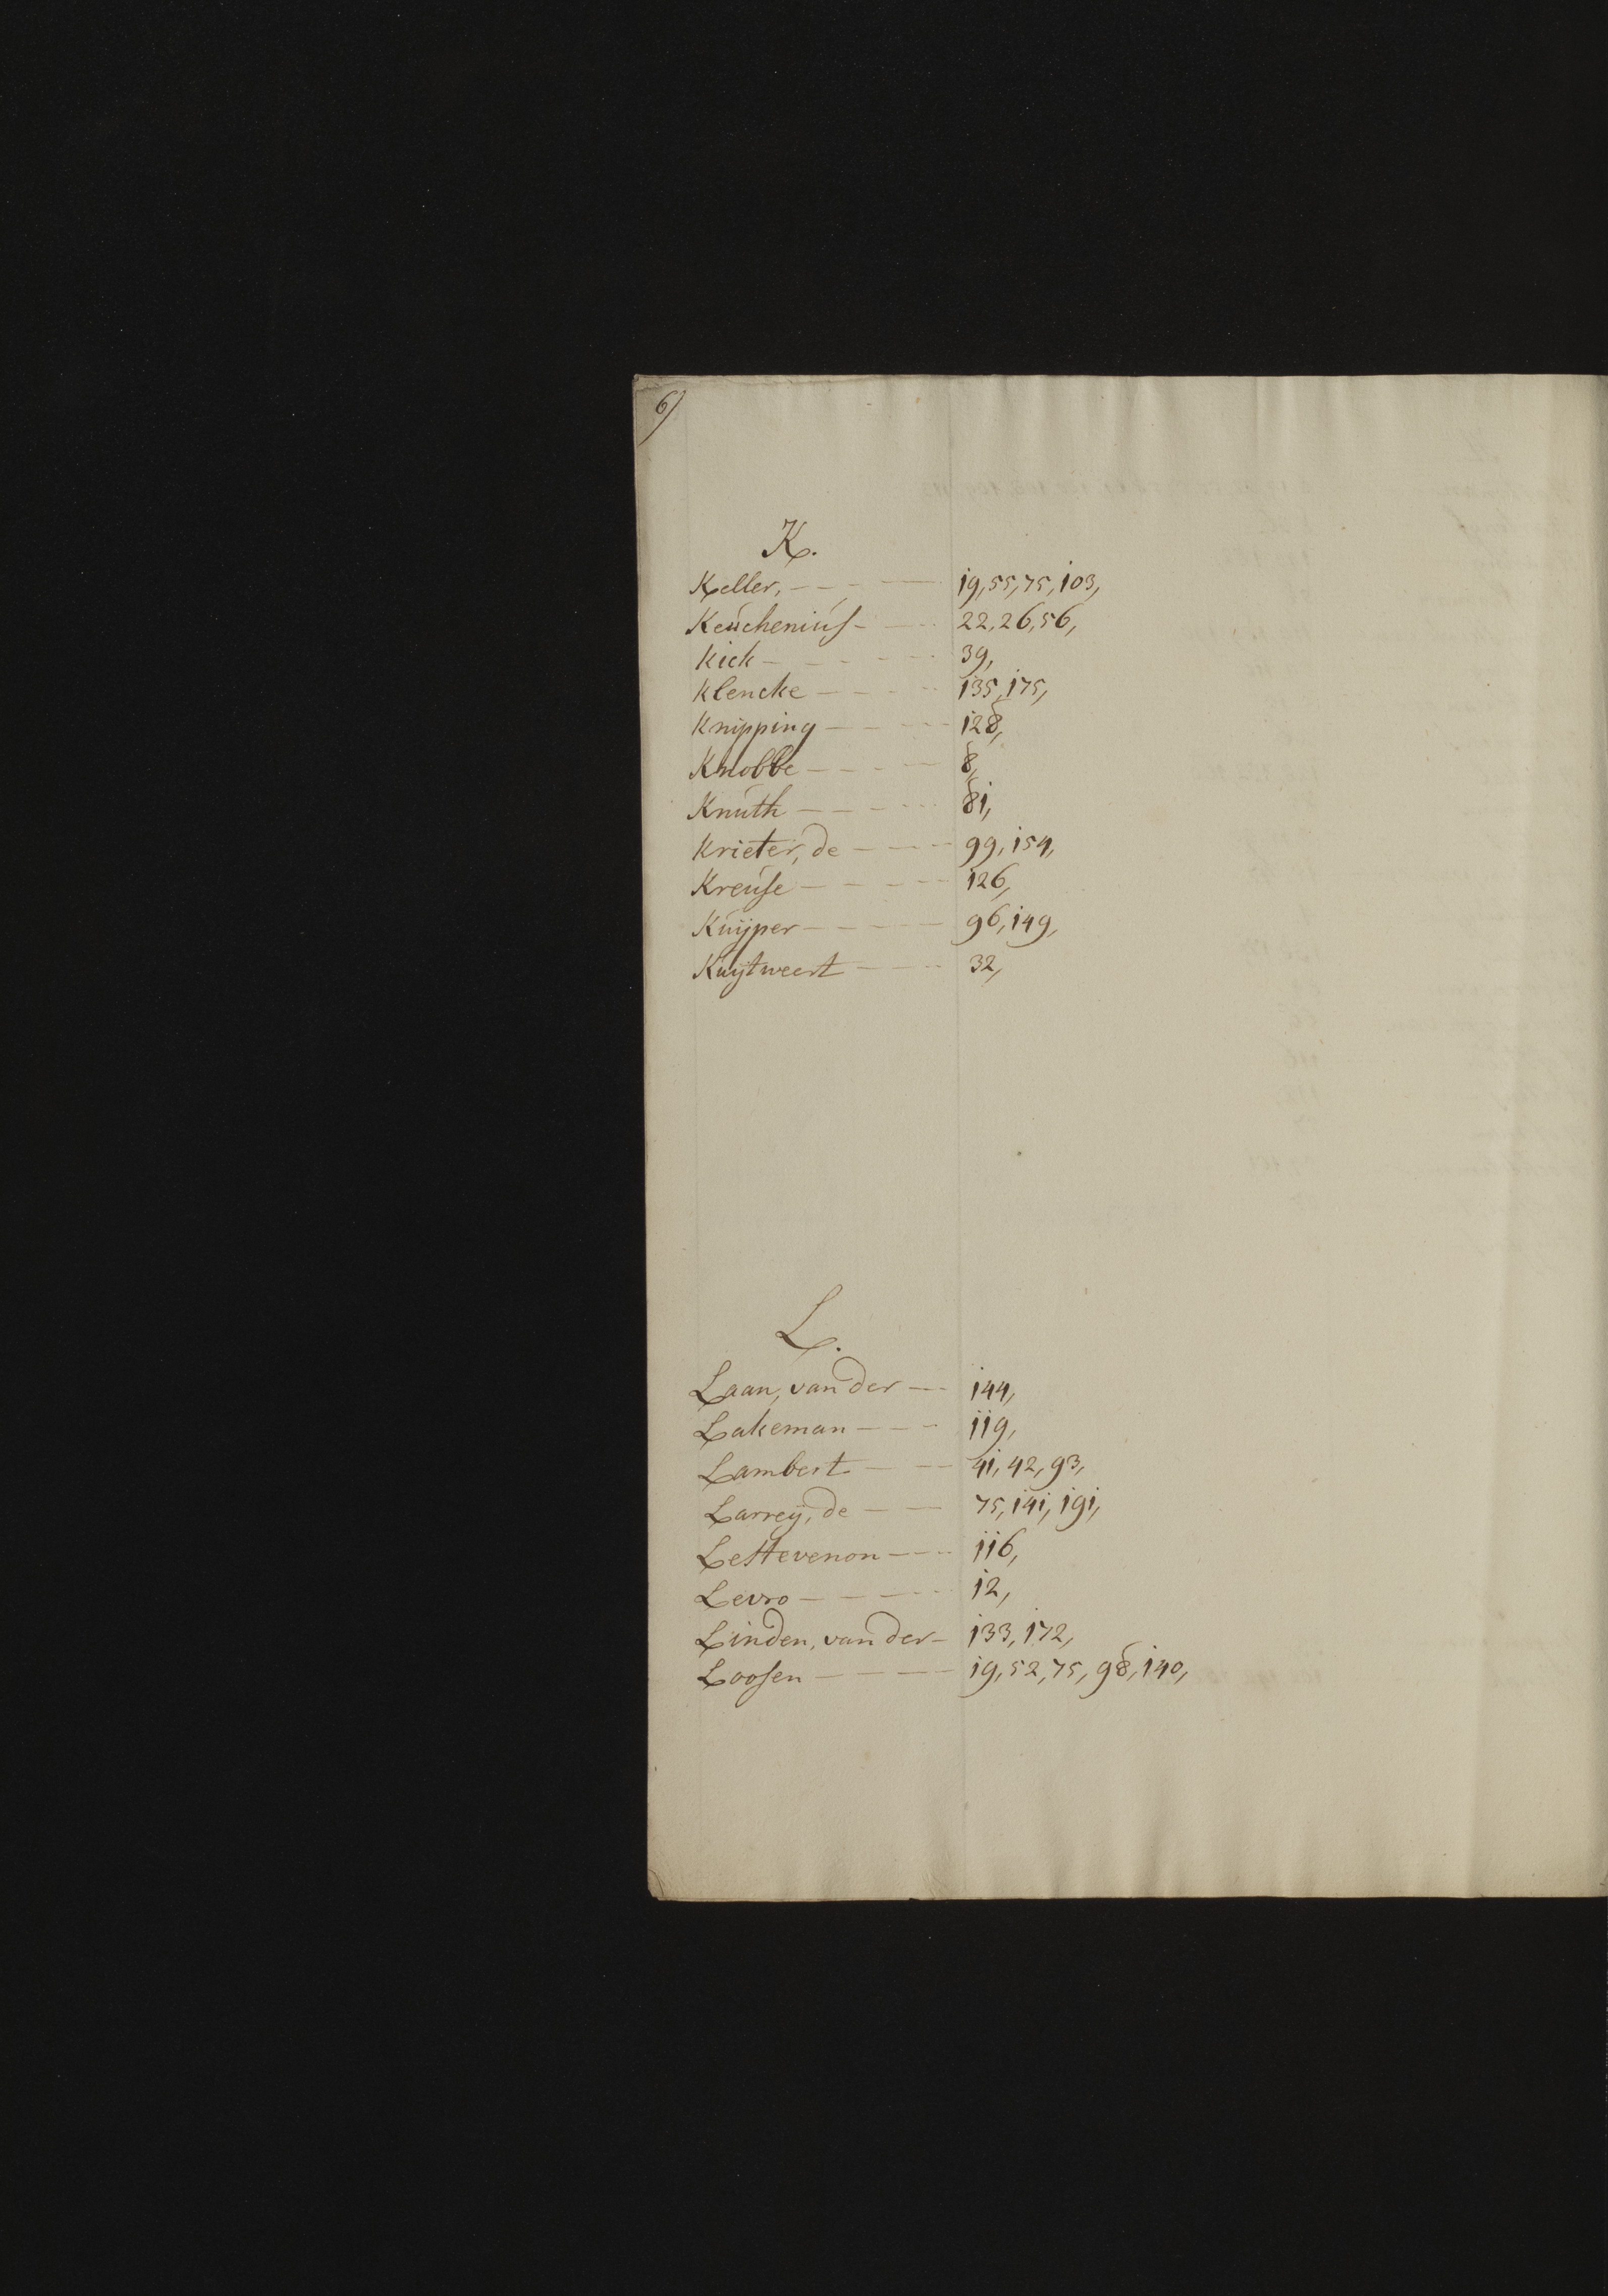 6)
K.
Keller, - - - - 19, 55, 75, 103,
Keucheniuſ - - - 22, 26, 56,
Kick - - - - - 39,
Klencke - - - - 135, 175,
Knipping - - - - 128,
Knobbe - - - - 8,
Knuth - - - - 81,
Krieter, de - - - - 99, 154,
Kreuſe - - - - - 126,
Kuijper - - - - - 96, 149,
Kuijtweert - - - - 32,
L.
Laan, van der - - 144,
Lakeman - - - - 119,
Lambert - - - 41, 42, 93,
Larreij, de - - - 75, 141, 191,
Lestevenon - - - 116,
Levro - - - - - 12,
Linden, van der - 133, 172,
Looſen - - - - - 19, 52, 75, 98, 140,